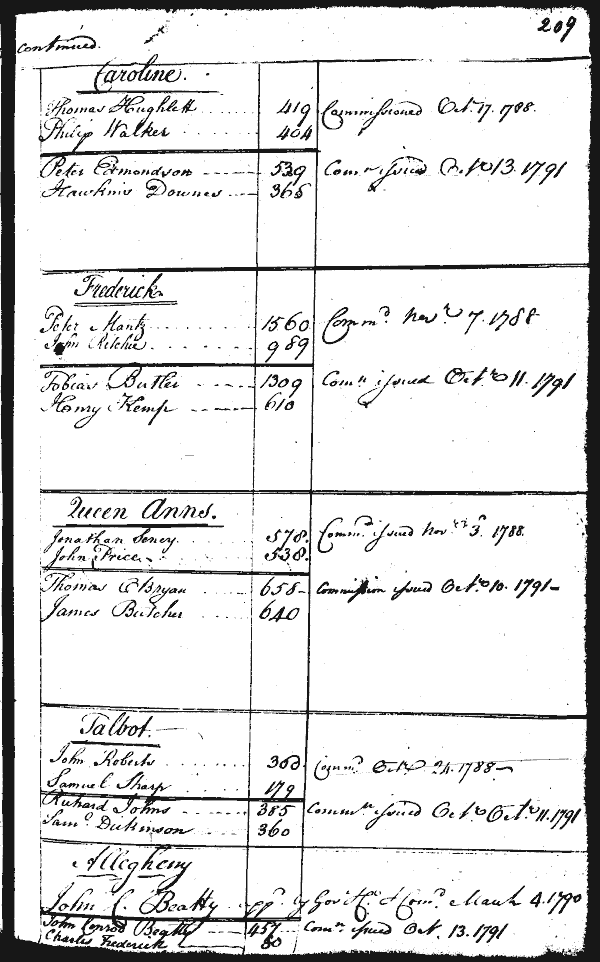 209
continued.
Caroline.
Thomas Hughlett 419 Commissioned Oct. 17. 1788.
Philip Walker 404
Peter Edmondson 529 Comn. issued Octr. 13. 1791
Hawkins Downes 365
Frederick
Peter Mantz 1560 Commd. Novr. 7. 1788
John Ritchie 989
Tobias Butler 1309 Comn. issued Octr. 11. 1791
Henry Kemp 610
Queen Anns.
Jonathan Seney 578. Commn. issued Novr. 3d. 1788.
John Price 538.
Thomas O Bryan 658 Commission issued Octr. 10. 1791
James Butcher 640
Talbot.
John Roberts 360. Commd. Octr. 24. 1788
Samuel Sharp 179
Richard Johns 385 Commn. issued Octr. Octr. 11. 1791
Saml. Dickinson 360
Allegheny
John C. Beatty appd. by Govr. & Comd. March 4. 1790
John Conrod Beatty 457 Comn. issued Oct. 13. 1791
Charles Frederick 80